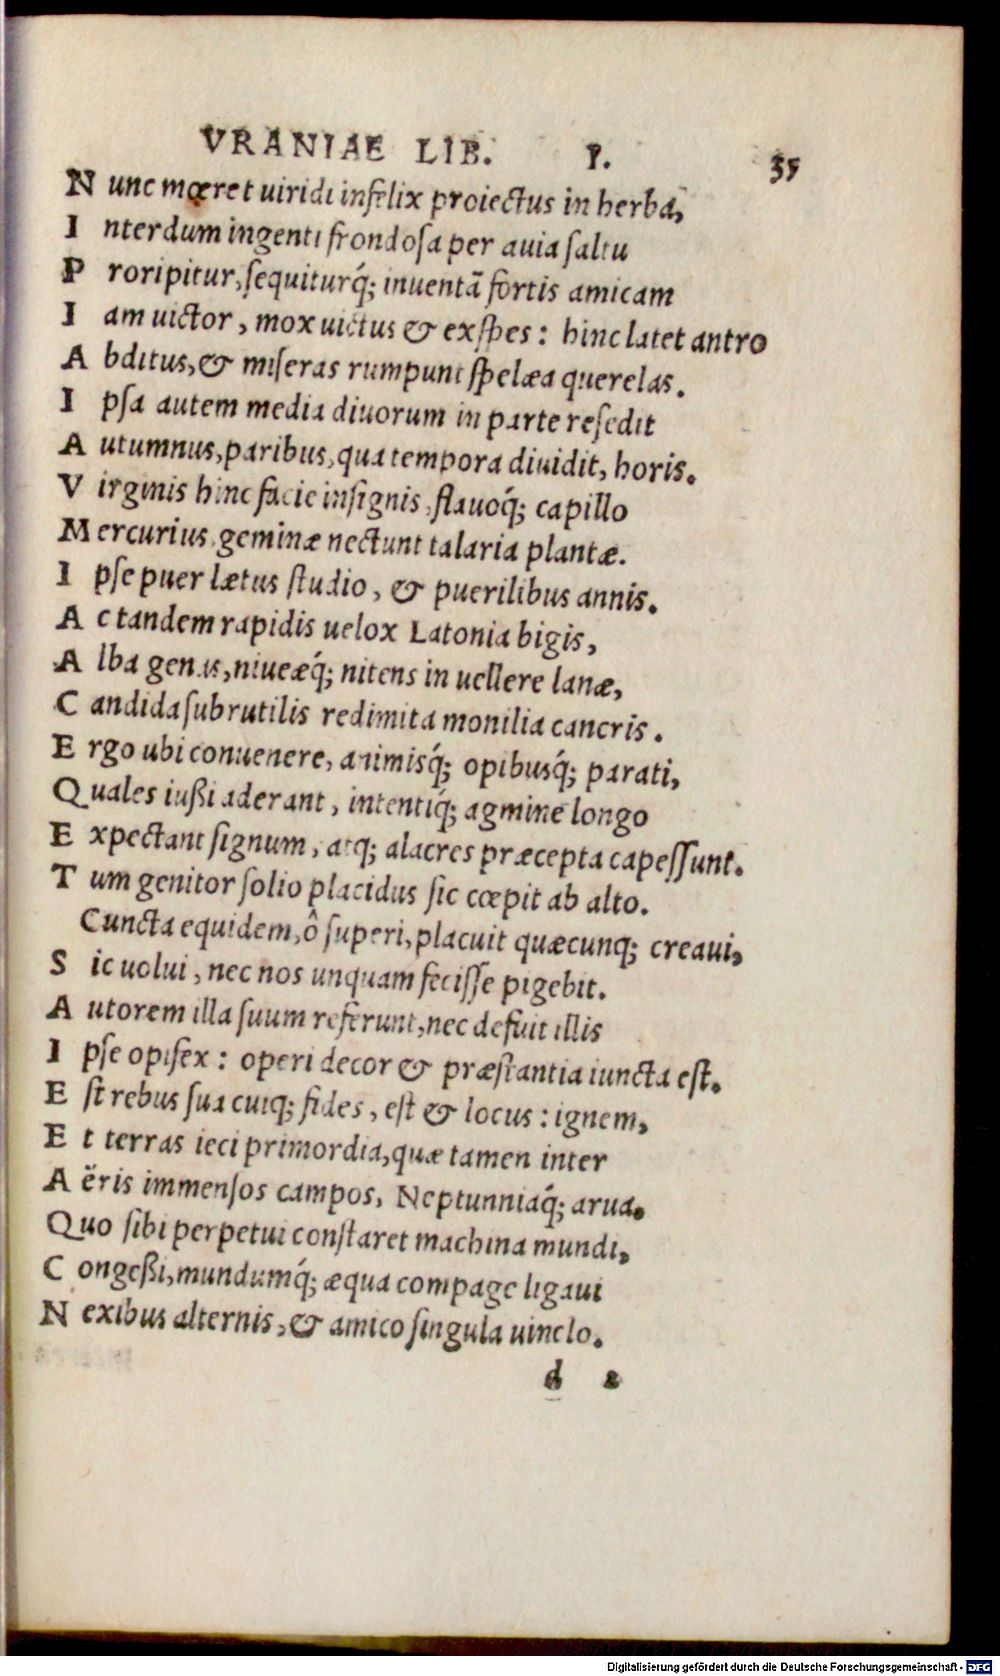 VRANIAE LIB. P. 35
Nunc mœret uiridi infelix proiectus in herba,
Interdum ingenti frondosa per auia saltu
Proripitur, sequiturq́; inuentã fortis amicam
Iam uictor, mox uictus & exspes: hinc latet antro
Abditus, & miseras rumpunt spelæa querelas.
Ipsa autem media diuorum in parte resedit
Autumnus, paribus, qua tempora diuidit, horis.
Virginis hinc facie insignis, flauoq́; capillo
Mercurius, geminæ nectunt talaria plantæ.
Ipse puer lætus studio, & puerilibus annis.
Ac tandem rapidis uelox Latonia bigis,
Alba genas, niueæq́; nitens in uellere lanæ,
Candida subrutilis redimita monilia cancris.
Ergo ubi conuenere, animisq́; opibusq́; parati,
Quales iußi aderant, intentiq́; agmine longo
Expectant signum, atq; alacres præcepta capessunt.
Tum genitor solio placidus sic cœpit ab alto.
Cuncta equidem, ô superi, placuit quæcunq; creaui,
Sic uolui, nec nos unquam fecisse pigebit.
Autorem illa suum referunt, nec defuit illis
Ipse opifex: operi decor & præstantia iuncta est.
Est rebus sua cuiq; fides, est & locus: ignem,
Et terras ieci primordia, quæ tamen inter
Aëris immensos campos, Neptunniaq́; arua.
Quo sibi perpetui constaret machina mundi,
Congeßi, mundumq́; æqua compage ligaui
Nexibus alternis, & amico singula uinclo.
d 2
Digitalisierung gefördert durch die Deutsche Forschungsgemeinschaft - DFG